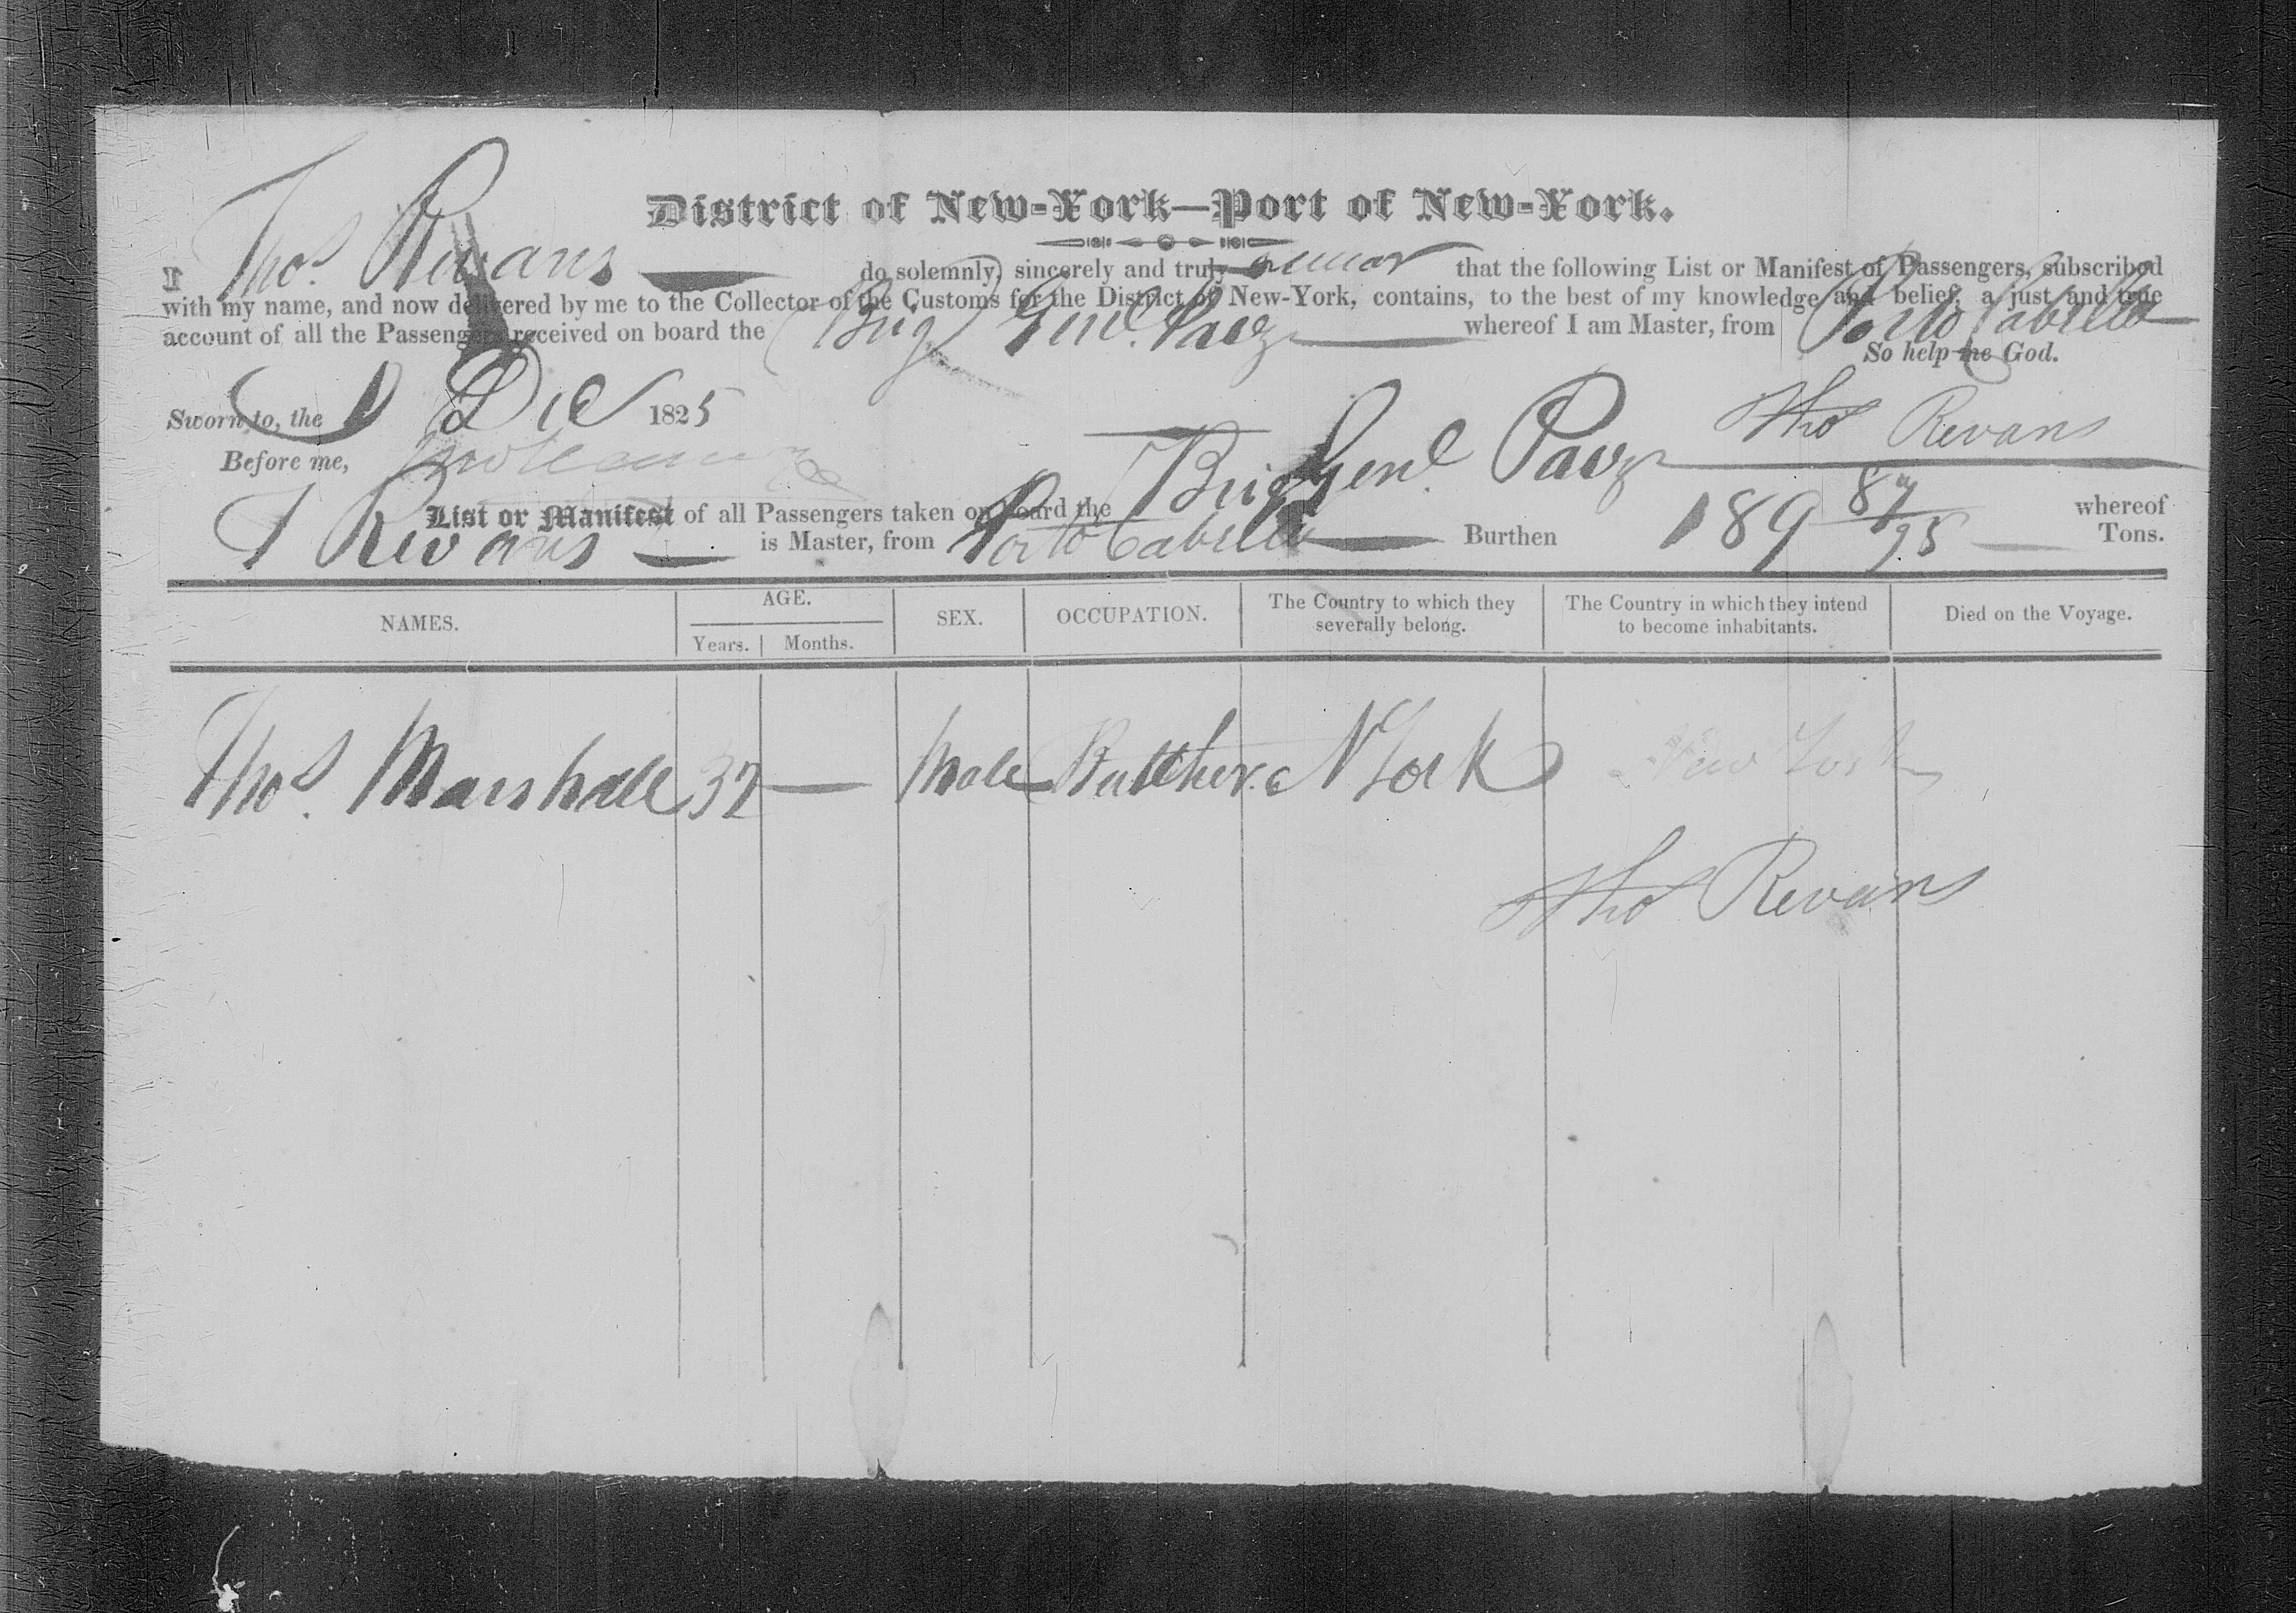 District of New-York—Port of New-York.
I Thos Revans do solemnly, sincerely and truly swear that the following List or Manifest of Passengers, subscribed
with my name, and now delivered by me to the Collector of the Customs for the District of New-York, contains, to the best of my knowledge and belief, a just and true
account of all the Passengers received on board the Brig Genl. Paez whereof I am Master, from Porto Cabello
So help me God.
Sworn to, the 1 Dec 1825
Thos Revans
Before me,
List or Manifest of all Passengers taken on board the Brig Genl. Paez whereof
T Revans is Master, from Porto Cabello Burthen 189 87/95 Tons.
NAMES. AGE. Years. Months. SEX. OCCUPATION. The Country to which they severally belong. The Country in which they intend to become inhabitants. Died on the Voyage.
Thos. Marshall 32 — Male Butcher. N York New York
Thos Revans